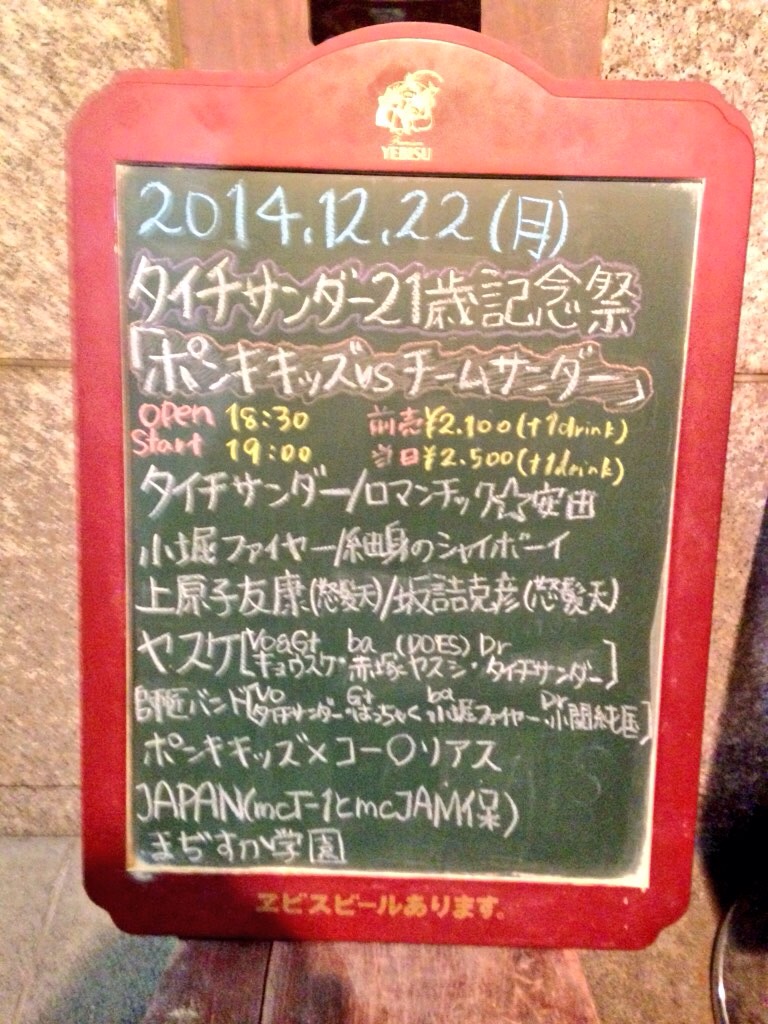 YEBISU
2014.12.22(月)
タイチサンダー21歳記念祭
「ポンキキッズvsチームサンダー」
open 18:30 前売¥2.100(+1drink)
Start 19:00 当日¥2.500(+1drink)
タイチサンダー/ロマンチック☆安田
小堀ファイヤー/細身のシャイボーイ
上原子友康(怒髪天)/坂詰克彦(怒髪天)
ヤスケ[Vo&Gt キョウスケ・ba 赤塚ヤスシ(DOES)・Dr タイチサンダー]
師匠バンド[Vo タイチサンダー・Gt ぱっちゃく・ba 小堀ファイヤー・Dr 小関純匡]
ポンキキッズ×コー〇リアス
JAPAN(mcT-1とmcJAM保)
まぢすか学園
ヱビスビールあります。